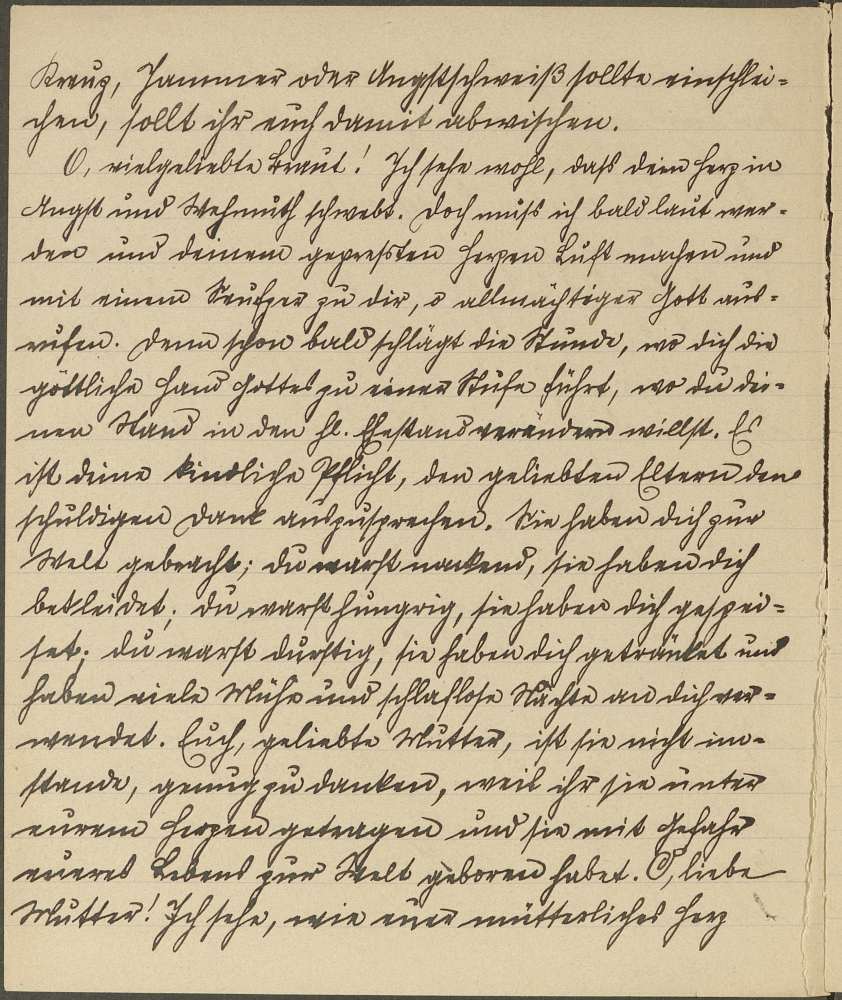 Kreuz, Jammer oder Angstschweiß sollte einschlei=
chen, sollt ihr euch damit abwischen.
O, vielgeliebte Braut! Ich sehe wohl, daß dein Herz in
Angst und Wehmuth schwebt. Doch muß ich bald laut wer=
den und deinem gepreßten Herzen Luft machen und
mit einem Seufzer zu dir, o allmächtiger Gott aus=
rufen. Denn schon bald schlägt die Stunde, wo dich die
göttliche Hand Gottes zu einer Stufe führt, wo du dei=
nen Stand in den hl. Ehestand verändern willst. Es
ist deine kindliche Pflicht, den geliebten Eltern den
schuldigen Dank auszusprechen. Sie haben dich zur
Welt gebracht; du warst nackend, sie haben dich
bekleidet; du warst hungrig, sie haben dich gespei=
set; du warst durstig, sie haben dich getränket und
haben viele Mühe und schlaflose Nächte an dich ver=
wendet. Euch, geliebte Mutter, ist sie nicht im=
stande, genug zu danken, weil ihr sie unter
eurem Herzen getragen und sie mit Gefahr
eueres Lebens zur Welt geboren habet. O, liebe
Mutter! Ich sehe, wie euer mütterliches Herz